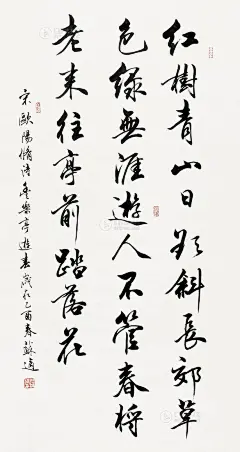 紅樹青山日欲斜長郊草
色綠無涯遊人不管春將
老来往亭前踏落花
宋歐陽脩詩豐樂亭遊春歲在乙酉春蘇適